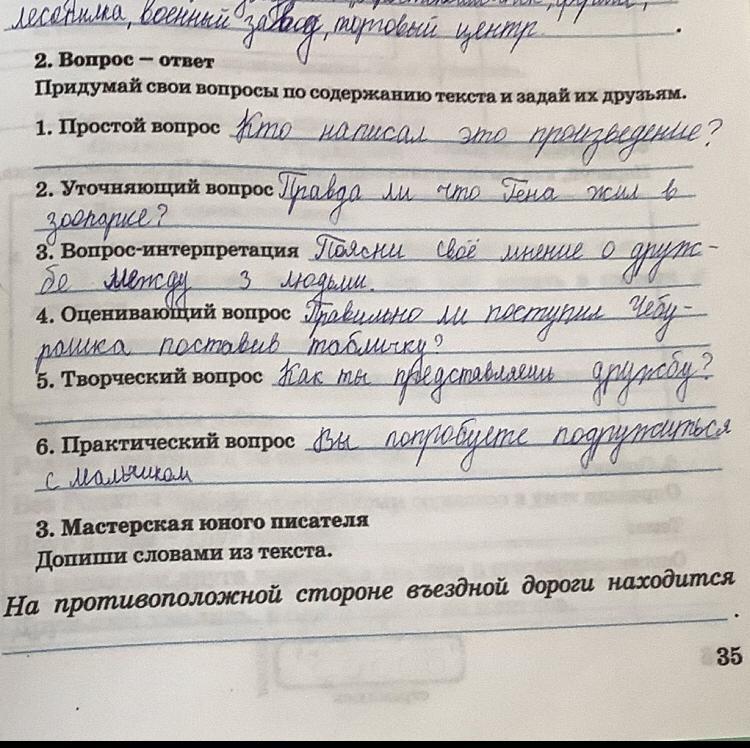 лесопилка, военный завод, торговый центр.
2. Вопрос – ответ
Придумай свои вопросы по содержанию текста и задай их друзьям.
1. Простой вопрос Кто написал это произведение?
2. Уточняющий вопрос Правда ли что Гена жил в
зоопарке?
3. Вопрос-интерпретация Поясни своё мнение о друж-
бе между 3 людьми.
4. Оценивающий вопрос Правильно ли поступил Чебу-
рашка поставив табличку?
5. Творческий вопрос Как ты представляешь дружбу?
6. Практический вопрос Вы попробуете подружиться
с мальчиком
3. Мастерская юного писателя
Допиши словами из текста.
На противоположной стороне въездной дороги находится
.
35